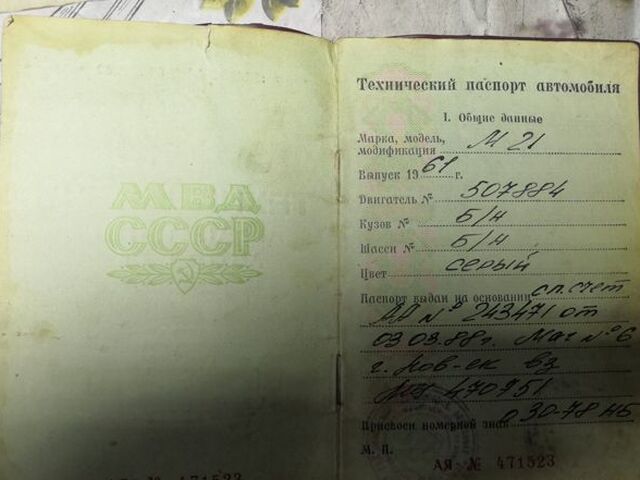 МВД
СССР
Технический паспорт автомобиля
I. Общие данные
Марка, модель,
модификация М 21
Выпуск 1961 г.
Двигатель № 507884
Кузов № Б/Н
Шасси № Б/Н
Цвет серый
Паспорт выдан на основании сп. счет
АА № 243471 от
03 03.88г. Маг № 6
г. вз
470951
Присвоен номерной знак о 30-78 НБ
М. П.
АЯ № 471523
АЯ № 471523